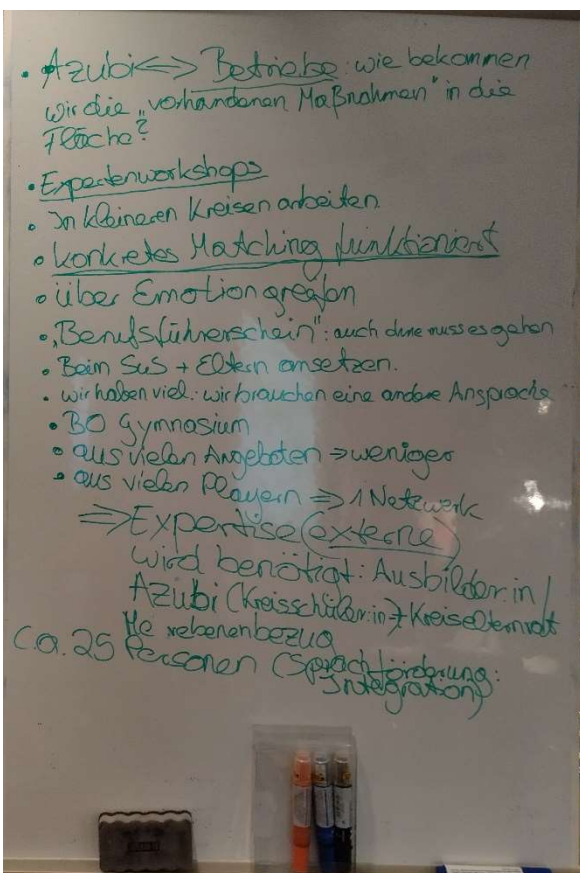 • Azubi <=> Betriebe: wie bekommen
wir die „vorhandenen Maßnahmen" in die
Fläche?
• Expertenworkshops
• In kleineren Kreisen arbeiten
• konkretes Matching funktioniert
• über Emotion greifen
• „Berufsführerschein": auch ohne muss es gehen
• Beim SuS + Eltern ansetzen.
• wir haben viel: wir brauchen eine andere Ansprache
• BO Gymnasium
• aus vielen Angeboten → weniger
• aus vielen Playern => 1 Netzwerk
=> Expertise (externe)
wird benötigt: Ausbilder:in /
Azubi (Kreisschüler:in) + Kreiselternrat
ca. 25 Personen (Sprachförderung:
Integration)